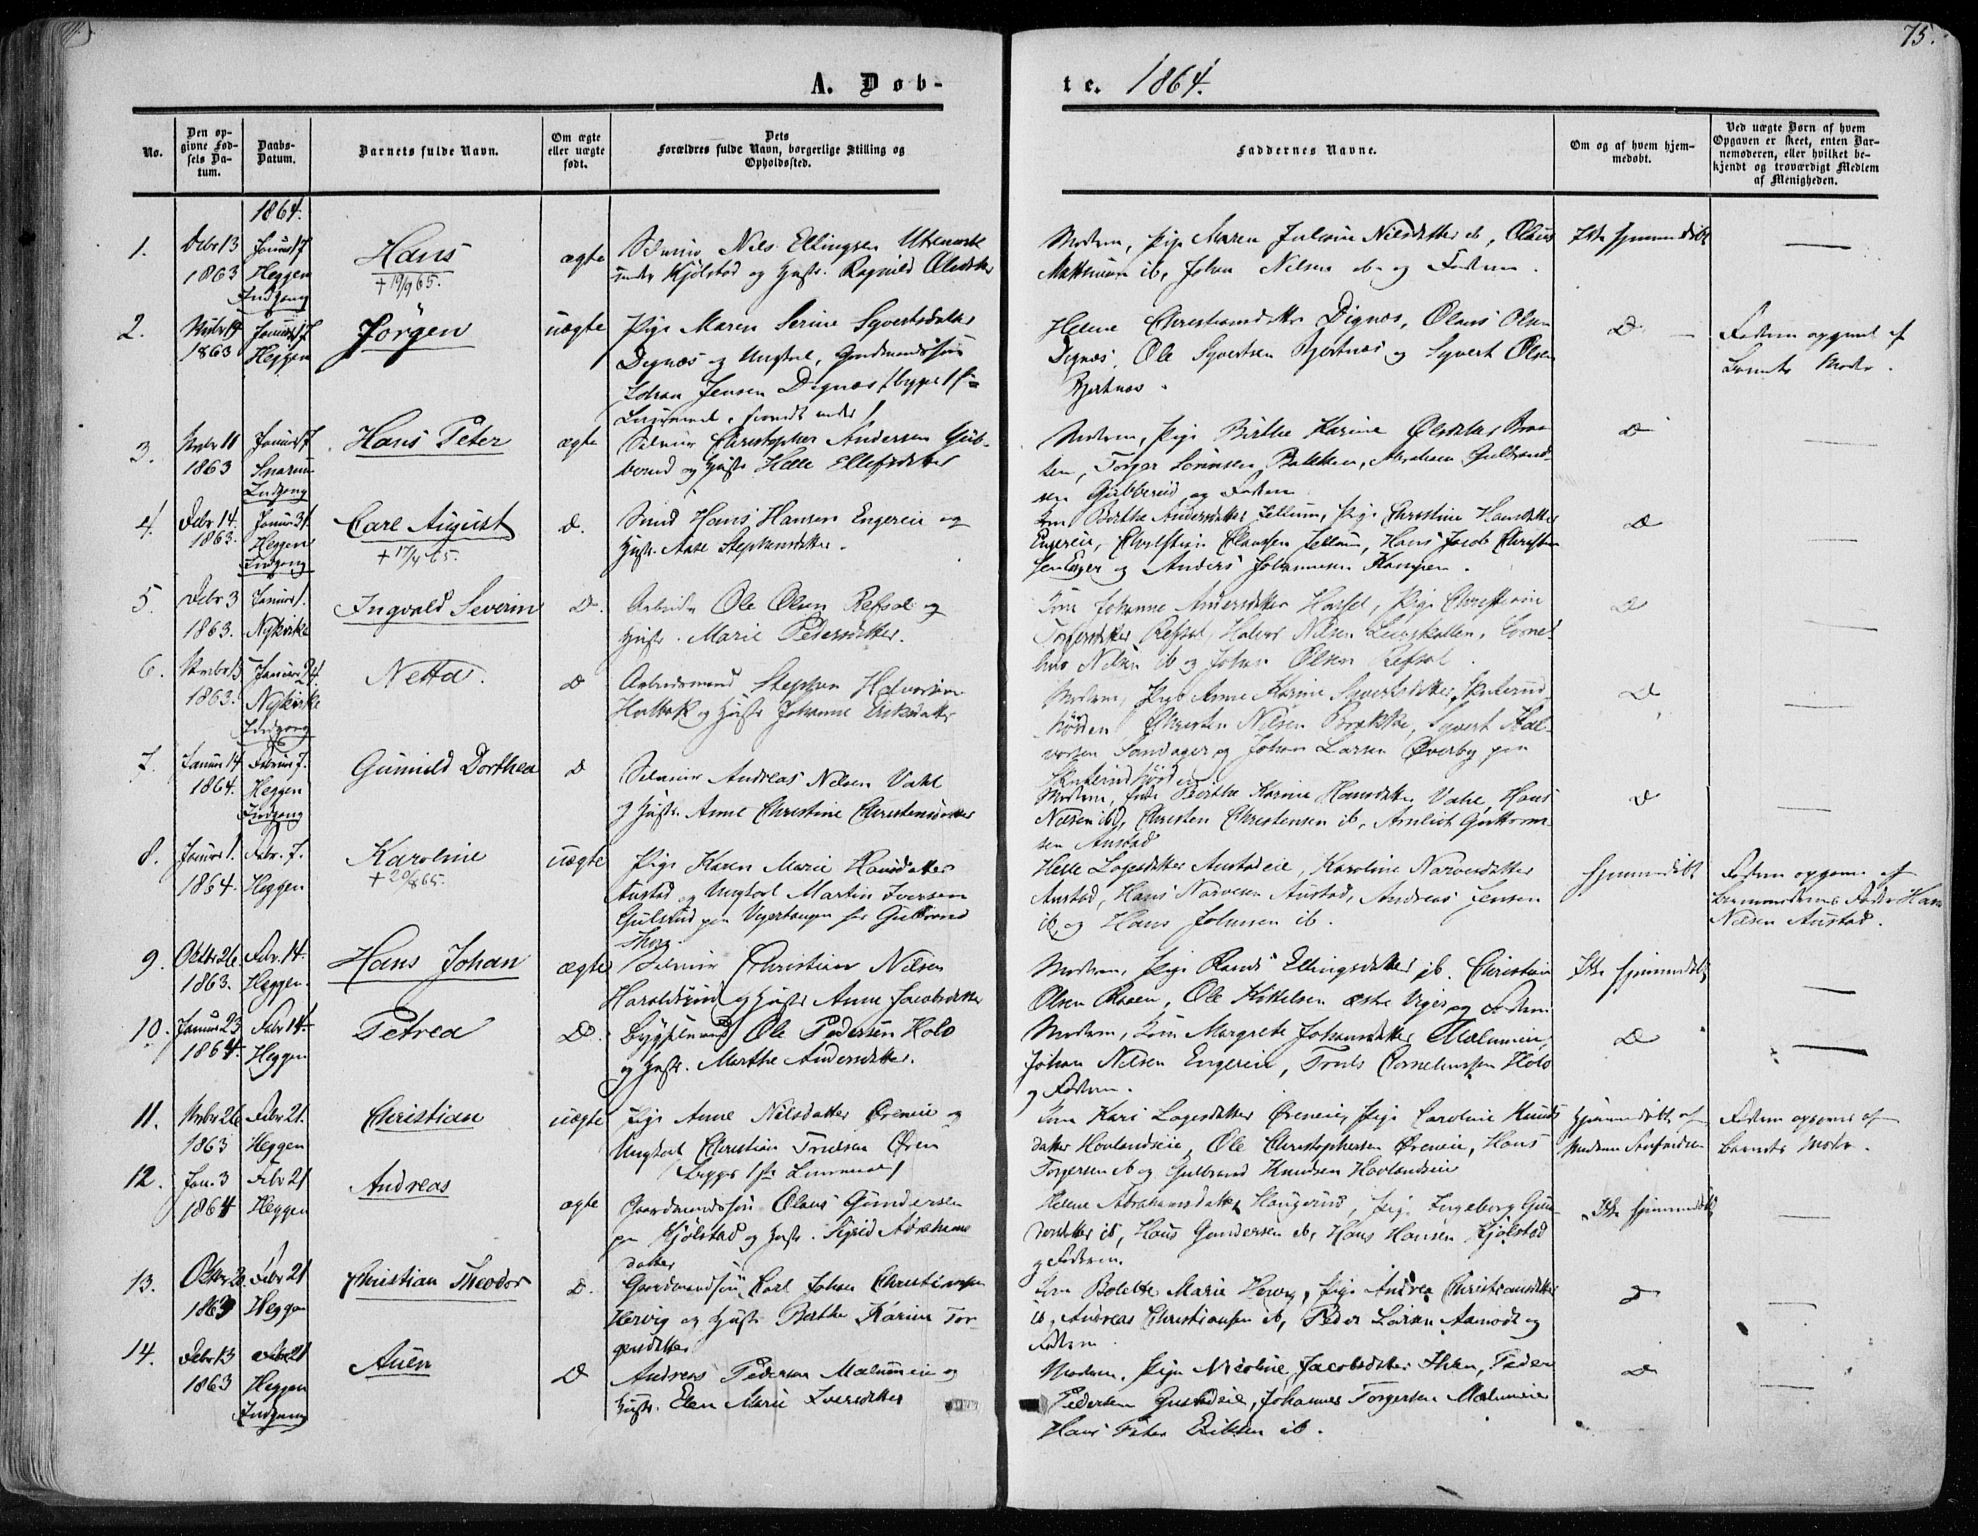 75.
A. Døb-
te. 1864.
No.
Den op-
givne Fød-
sels Da-
tum.
Daabs-
Datum.
Barnets fulde Navn.
Om ægte
eller uægte
født.
Dets
Forældres fulde Navn, borgerlige Stilling og
Opholdssted.
Faddernes Navne.
Om og af hvem hjem-
medøbt.
Ved uægte Børn af hvem
Opgaven er skeet, enten Bar-
nemoderen, eller hvilket be-
kjendt og troværdigt Medlem
af Menigheden.
1864.
1.
Debr 13
1863
Januar 17
Heggen
Indgang
Hans
+ 19/9 65.
ægte
Nils Ellingsen
under Kjølstad og Hustr. Ragnild Olsdatter
Modern, Pige Maren Juliane Nilsdatter ib, Olaus
Mathisen ib, Johan Nilsen ib og Fadern.
Ikke hjemmedøbt
2.
1863
Januar 17
Heggen
Jörgen
uægte
Pige Maren Serine Syvertsdatter
Dignæs og Ungkarl, Gaardmandssøn
Johan Jensen Dignæs
Helene Christiansdatter Dignæs, Olaus Olsen
Dignæs, Ole Syvertsen Bjertnæs og Syvert Olsen
Bjertnæs.
D
Fadern opgivet af
Barnets Moder.
3.
Novbr 11
1863
Januar 17
Snarum
Indgang
Hans Peter
ægte
Christopher Andersen Gub-
berud og Hustr Helle Ellefsdatter
Modern, Pige Birthe Karine Olsdatter
Torger Sörensen Gulbrand-
sen Gubberud og Fadern
D
4.
Debr 14.
1863.
Januar 31.
Heggen
Indgang
Carl August
+ 17/4 65.
D.
Smed Hans Hansen Engereie og
Hustr. Aase Stephensdatter.
Kone Berthe Andersdatter Jellum, Pige Christine Hansdatter
Engereie, Christian Clausen Jellum, Hans Jacob Christen
sen Enger og Anders Johannesen Kampen.
D
5.
Debr 3
1863.
Januar 1.
Nykirke
Ingvald Severin
D.
Arbeider Ole Olsen Refsal og
Hustr. Marie Pedersdatter.
Kone Johanne Andersdatter Pige Christiane
Torgersdatter Refsal, Halvor Nilsen Corne-
lius Nilsen ib og Johan Olsen Refsal.
D
6.
Novbr 13
1863.
Januar 24.
Nykirke
Indgang
Netta.
D
Arbeidsmand Stephen Halvorsen
Holbæk og Hustr Johanne Eriksdatter
Modern, Pige Anne Karine Syvertsdatter Skuterud-
hörden, Christen Nilsen Brække, Syvert Hal-
vorsen Sandager og Johan Larsen Øverby paa
D
7.
Januar 14
1864.
Februar 7.
Heggen
Indgang
Gunnild Dorthea
D
Andreas Nilsen Vahl
og Hustr. Anne Christine Christensdatter
Modern, Berthe Karine Hansdatter Vahl, Hans
Nilsen ibd, Christen Christensen ib, Guttorm-
sen Austad
D
8.
Januar 1.
1864.
Febr. 7.
Heggen
Karoline
+ 20/8 65.
uægte
Pige Karen Marie Hansdatter
Austad og Ungkarl Martin Iversen
Gulstud
Helle Lagesdatter Austadeie, Karoline Narvesdatter
Austad, Hans Narvesen Austad, Andreas Jensen
ib, og Hans Johnsen ib.
Hjemmedøbt
Fadern opgivet af
Barnemoderens Fader Hans
Nilsen Austad.
9.
Octbr 26.
1863.
Febr. 14.
Heggen.
Hans Johan
ægte
Christian Nilsen
Haraldsrud og Hustr Anne Jacobsdatter
Modern, Pige Randi Ellingsdatter ib. Christian
Olsen Ole Kittelsen østre og Fadern
Ikke hjemmedøbt
10.
Januar 23
1864.
Febr 14.
Heggen
Petrea
D.
Ole Pedersen Holo
og Hustr. Marthe Andersdatter.
Modern, Kone Margrete Johansdatter Mælumeie,
Johan Nilsen Engereie, Truls Corneliussen Holo
og Fadern.
D
11.
Novbr 26
1863
Febr 21.
Heggen
Christian
uægte
Pige Anne Nilsdatter Øreneie og
Ungkarl Christian Truelsen Øren
Kone Kari Lagesdatter Øreneie, Pige Caroline Knuds
datter Hovlandseie, Ole Christophersen Øreneie, Hans
Torgersen ib og Gulbrand Knudsen Hovlandseie
Hjemmedøbt af
Fadern opgivet af
Barnets Moder.
12.
Jan. 3
1864
Febr 21
Heggen
Andreas
ægte
Gaardmandssøn Olaus Gundersen
Kjölstad og Hustr. Sigrid Abrahams
datter
Helene Abrahamsdatter Haugerud, Pige Ingeborg Gun
dersdatter ib, Hans Gundersen ib, Hans Hansen Kjölstad
og Fadern.
Ikke hjemmedøbt
13.
Octbr
1863
Febr 21
Heggen
Christian Theodor
D.
Gaardmandssøn Carl Johan Christiansen
Hervig og Hustr Berthe Karine Tor-
gersdatter
Kone Bolette Marie Hervig, Pige Andrea Christiansdatter
ib, Andreas Christiansen ib, Peder Larsen Aamodt og
Fadern
D
14.
Debr 13
1863
Febr 21
Heggen
Indgang
D
Andreas Pedersen Mælumeie og
Hustr. Elen Marie Iversdatter
Modern, Pige Nicoline Jacobsdatter Peder
Pedersen Johannes Torgersen Mælumeie
Hans Peter Eriksen ib.
D